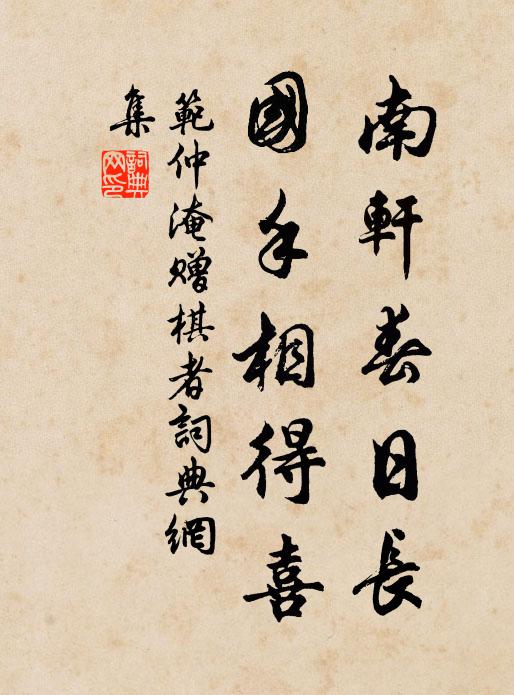 南軒春日長
國手相得喜
範仲淹贈棋者詞典網
集
詞典
网印